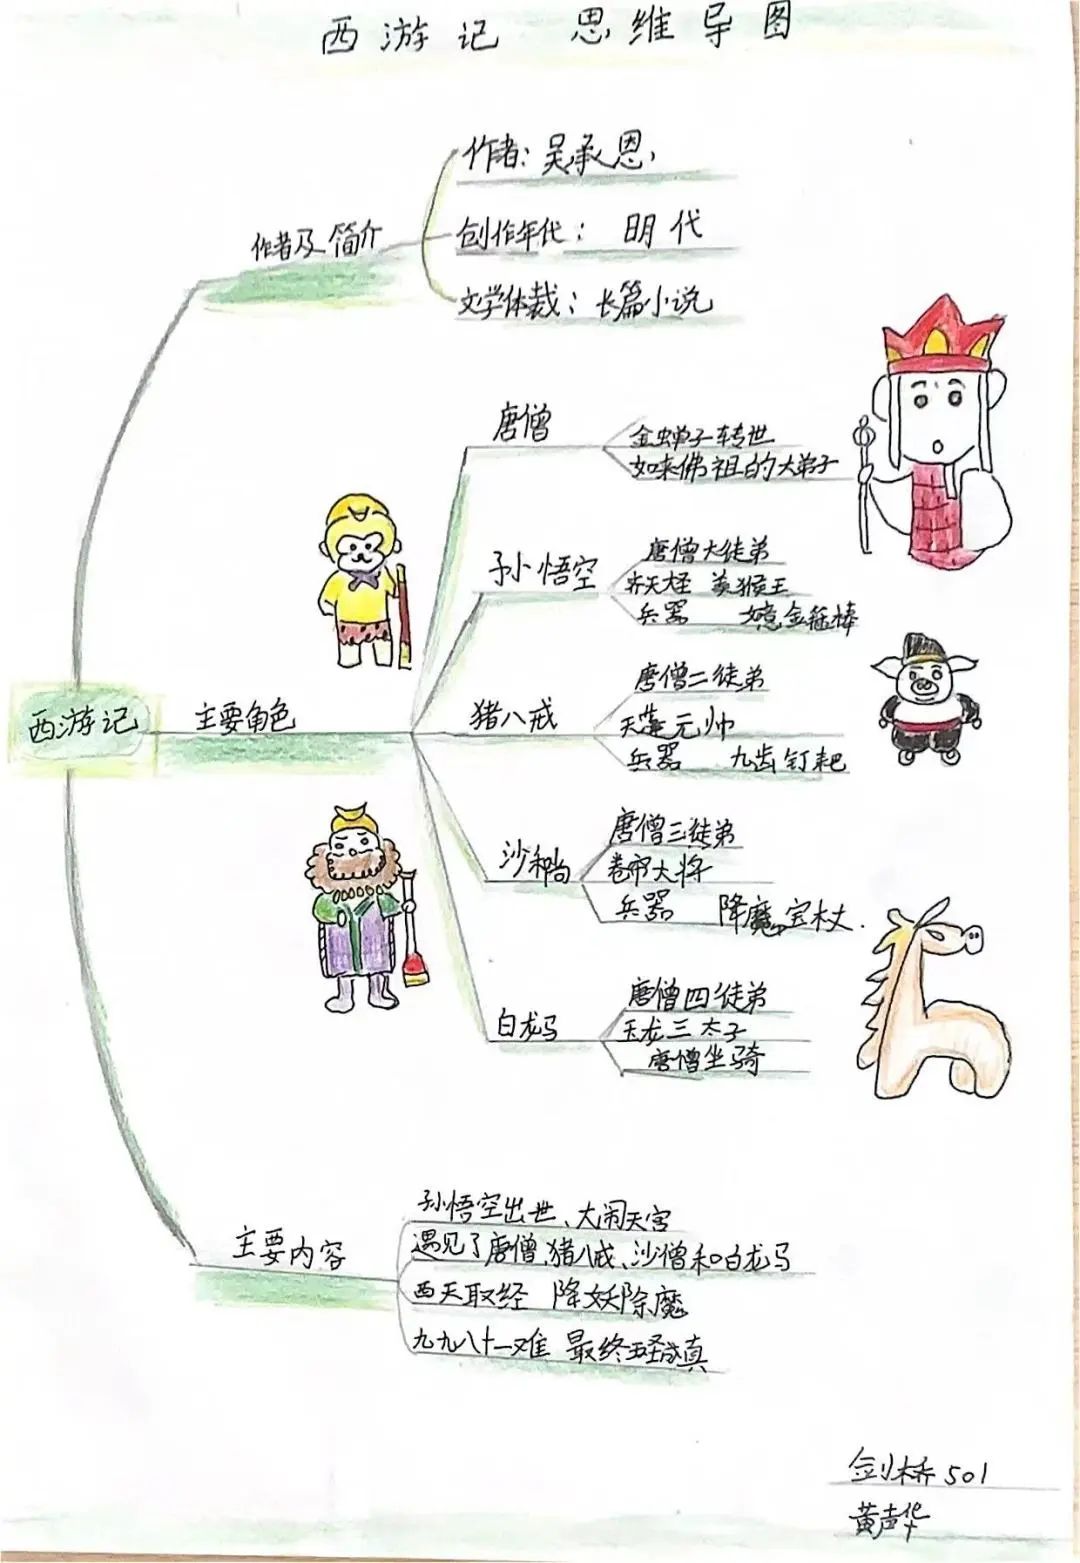 西游记 思维导图
作者及简介
作者：吴承恩
创作年代： 明代
文学体裁：长篇小说
西游记
主要角色
唐僧
金蝉子转世
如来佛祖的大弟子
孙悟空
唐僧大徒弟
齐天大圣 美猴王
兵器 如意金箍棒
猪八戒
唐僧二徒弟
天蓬元帅
兵器 九齿钉耙
沙和尚
唐僧三徒弟
卷帘大将
兵器 降魔宝杖.
白龙马
唐僧四徒弟
玉龙三太子
唐僧坐骑
主要内容
孙悟空出世、大闹天宫
遇见了唐僧、猪八戒、沙僧和白龙马
西天取经 降妖除魔
九九八十一难 最终五圣成真
剑桥501
黄声华